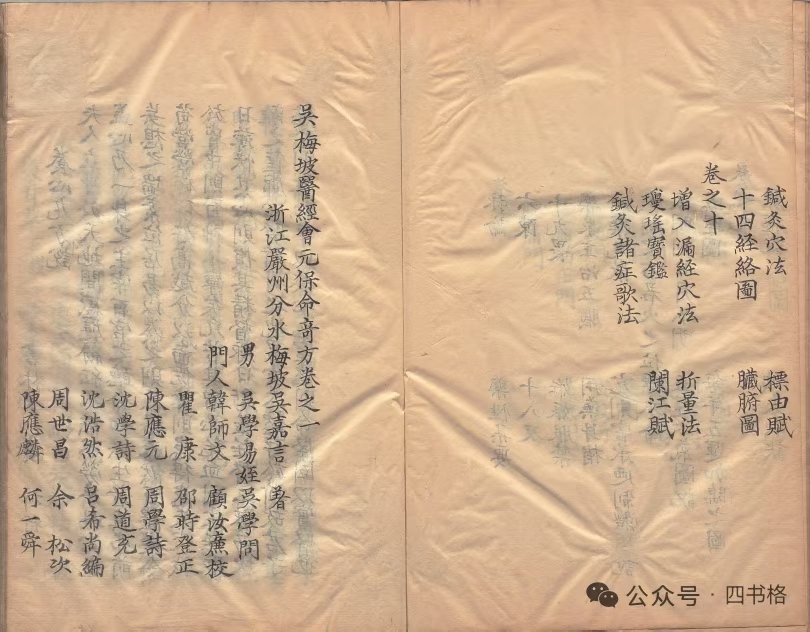 鍼灸穴法 標由賦
十四経絡圖 臓腑圖
卷之十
增入漏經穴法 折量法
瓊瑤寶鑑 闌江賦
鍼灸諸症歌法
吳梅坡醫經會元保命奇方卷之一
浙江嚴州分水梅坡吳嘉言著
男 吳學易姪吳學問
門人韓師文 顧汝㢘校
瞿康 邵時登正
陳應元 周學詩
沈學詩 周道充
沈浩然 呂希尚編
周世昌 余松次
陳應麟 何一舜
公众号·四书格